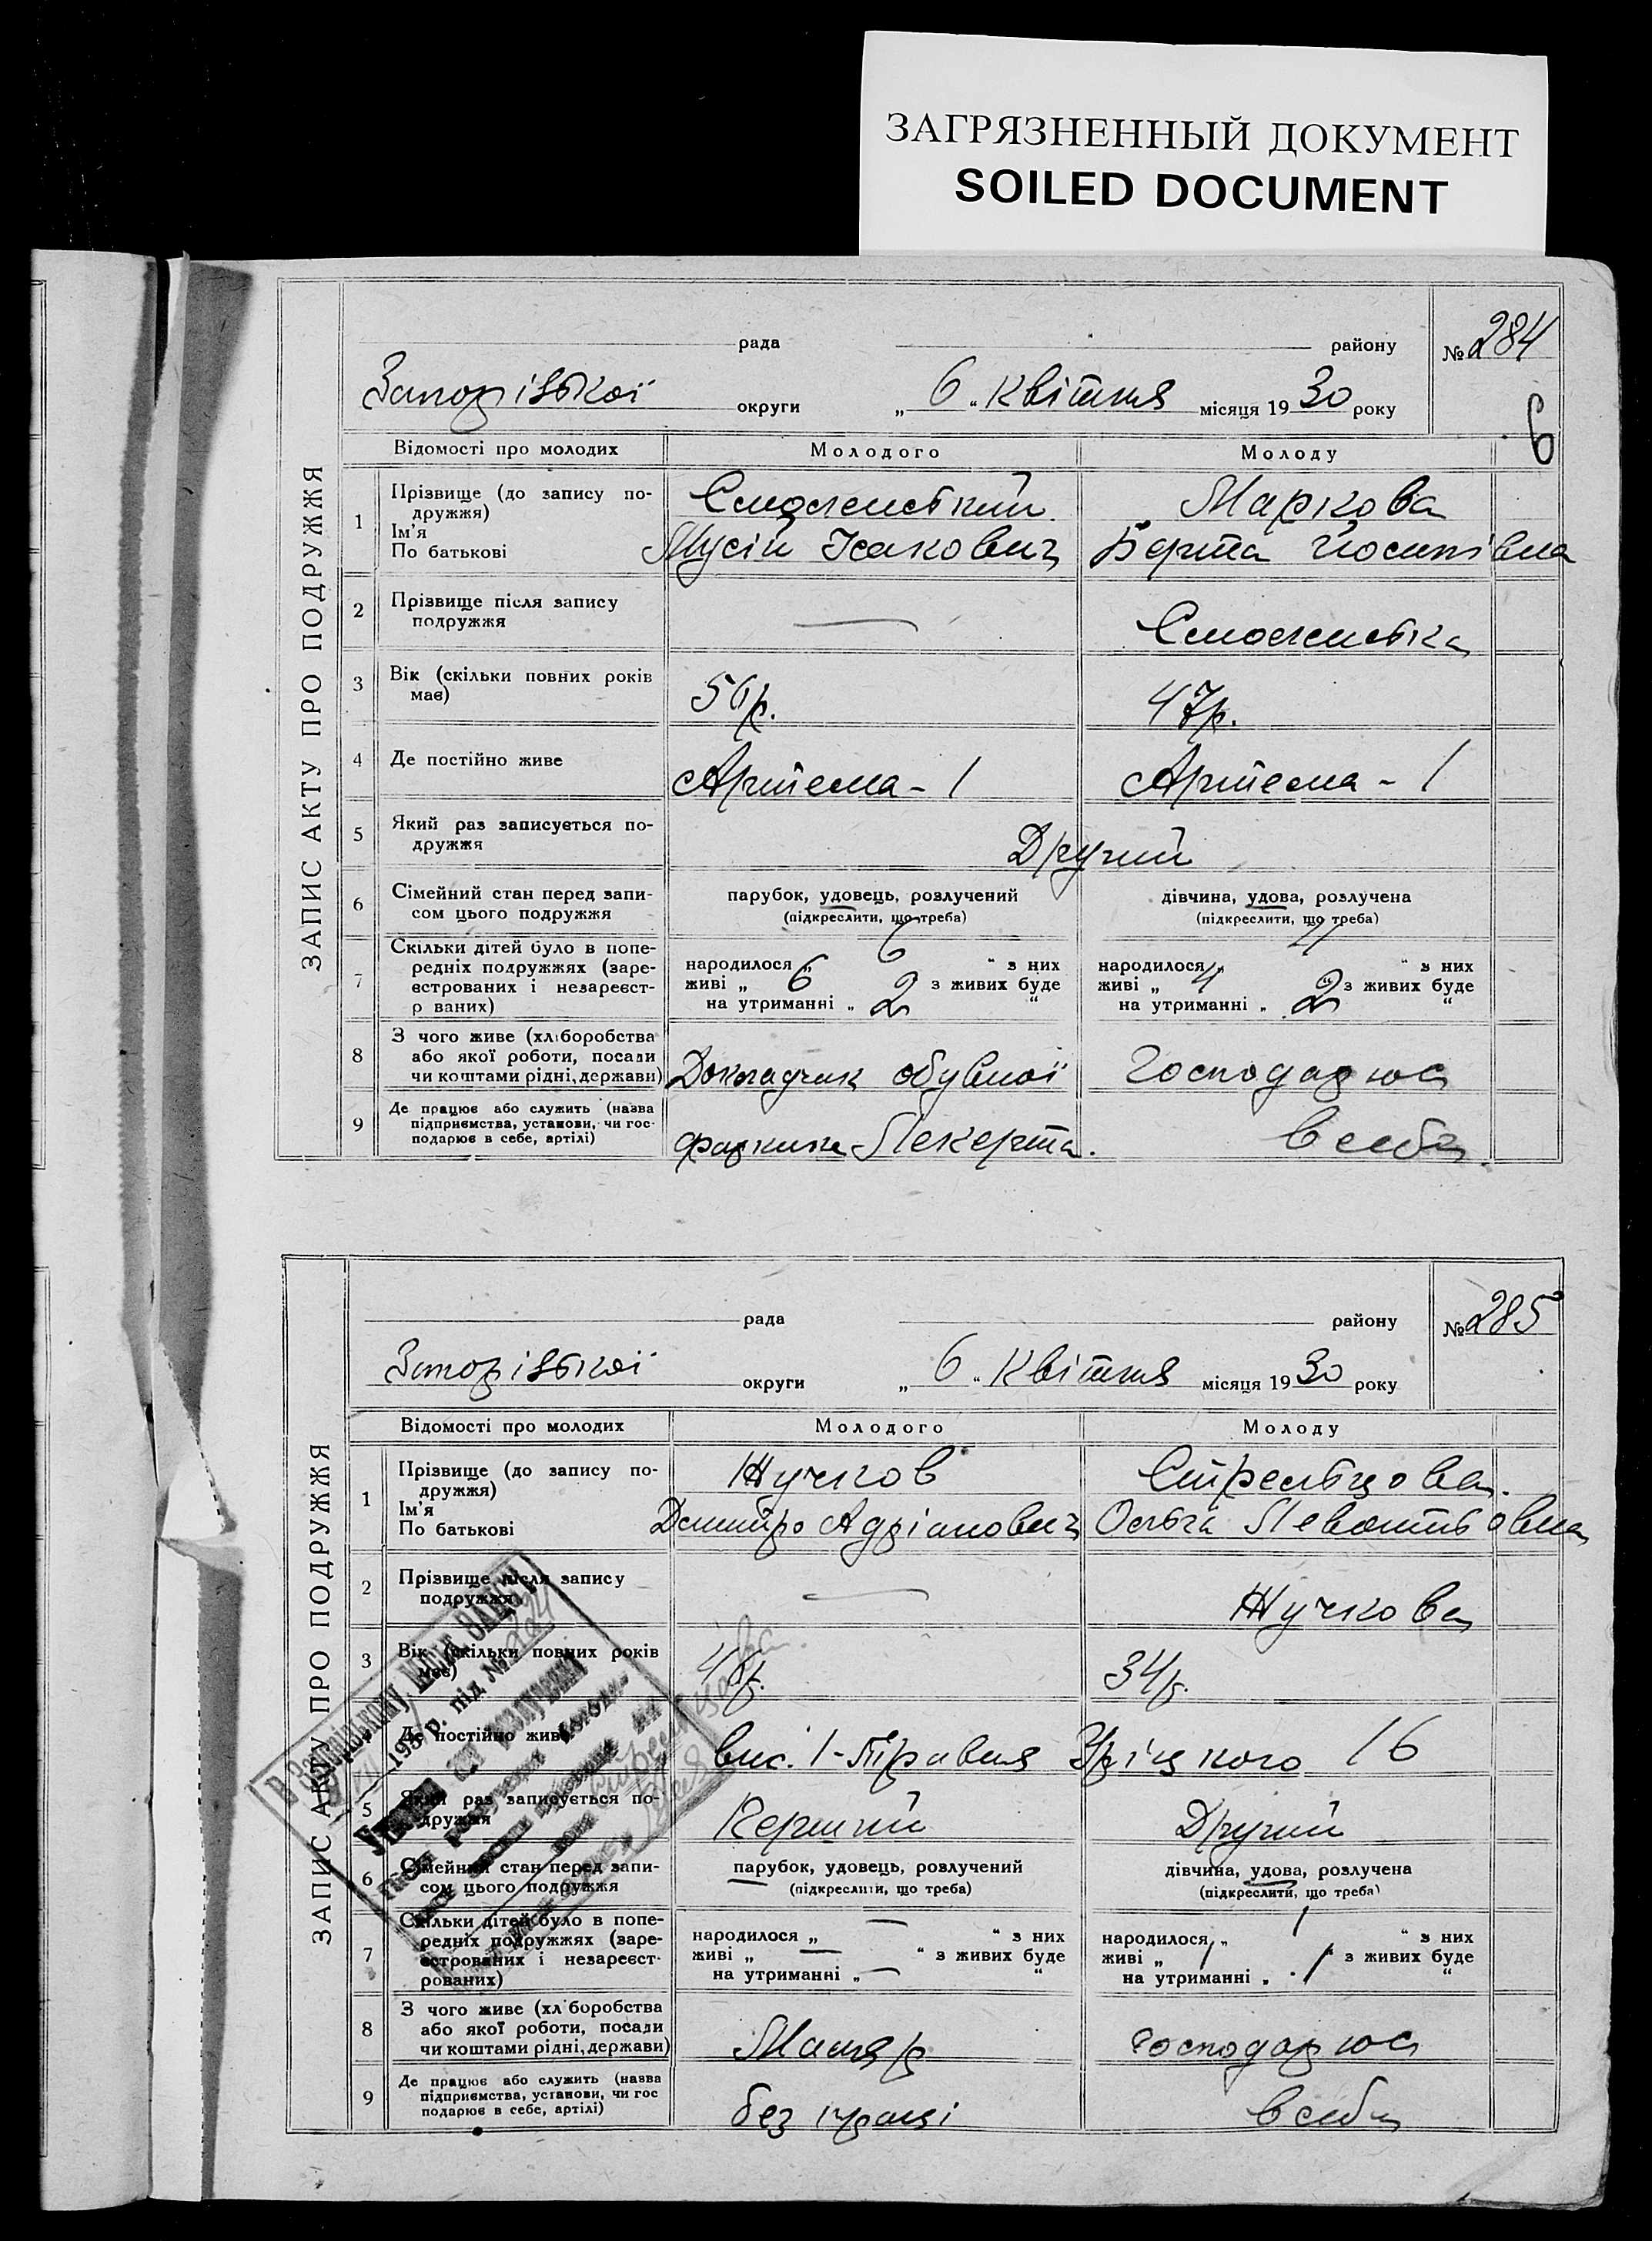 ЗАГРЯЗНЕННЫЙ ДОКУМЕНТ
SOILED DOCUMENT
ЗАПИС АКТУ ПРО ПОДРУЖЖЯ
рада району № 284
Запорізької округи „ 6 “ Квітня місяця 1930 року
6
Відомості про молодих Молодого Молоду
1 Прізвище (до запису по-
дружжя)
Ім'я
По батькові
Смоленський Маркова
Мусій Ісакович Берта Йосипівна
2 Прізвище після запису
подружжя
— Смоленська
3 Вік (скільки повних років
має)
56р. 47р.
4 Де постійно живе Артема - 1 Артема - 1
5 Який раз записується по-
дружжя
Другий
6 Сімейний стан перед запи-
сом цього подружжя
парубок, удовець, розлучений дівчина, удова, розлучена
(підкреслити, що треба) (підкреслити, що треба)
7 Скільки дітей було в попе-
редніх подружжях (заре-
єстрованих і незареєст-
р ваних)
народилося „ 6 “ з них
живі „ 6 з живих буде
на утриманні „ 2 “
народилося „ 4 “ з них
живі „ 4 з живих буде
на утриманні „ 2 “
8 З чого живе (хліборобства
або якої роботи, посади
чи коштами рідні, держави)
обувної Господарює
9 Де працює або служить (назва
підприємства, установи, чи гос-
подарює в себе, артілі)
Лекерта. в себе
ЗАПИС АКТУ ПРО ПОДРУЖЖЯ
рада району № 285
Запорізької округи „ 6 “ Квітня місяця 1930 року
Відомості про молодих Молодого Молоду
1 Прізвище (до запису по-
дружжя)
Ім'я
По батькові
Жучков Стрельцова
Дмитро Адріанович Ольга Левонтьовна
2 Прізвище після запису
подружжя
— Жучкова
3 Вік (скільки повних років
має)
34р.
4 Де постійно живе
вис. 1-Травня Уріцкого 16
5 Який раз записується по-
дружжя
Перший Другий
6 Сімейний стан перед запи-
сом цього подружжя
парубок, удовець, розлучений дівчина, удова, розлучена
(підкреслити, що треба) (підкреслити, що треба)
7 Скільки дітей було в попе-
редніх подружжях (заре-
єстрованих і незареєст-
рованих)
народилося „ — “ з них
живі „ — “ з живих буде
на утриманні „ — “
народилося „ 1 “ з них
живі „ 1 “ з живих буде
на утриманні „ 1 “
8 З чого живе (хл боробства
або якої роботи, посади
чи коштами рідні, держави)
Маляр господарює
9 Де працює або служить (назва
підприємства, установи, чи гос
подарює в себе, артілі)
без праці в себе